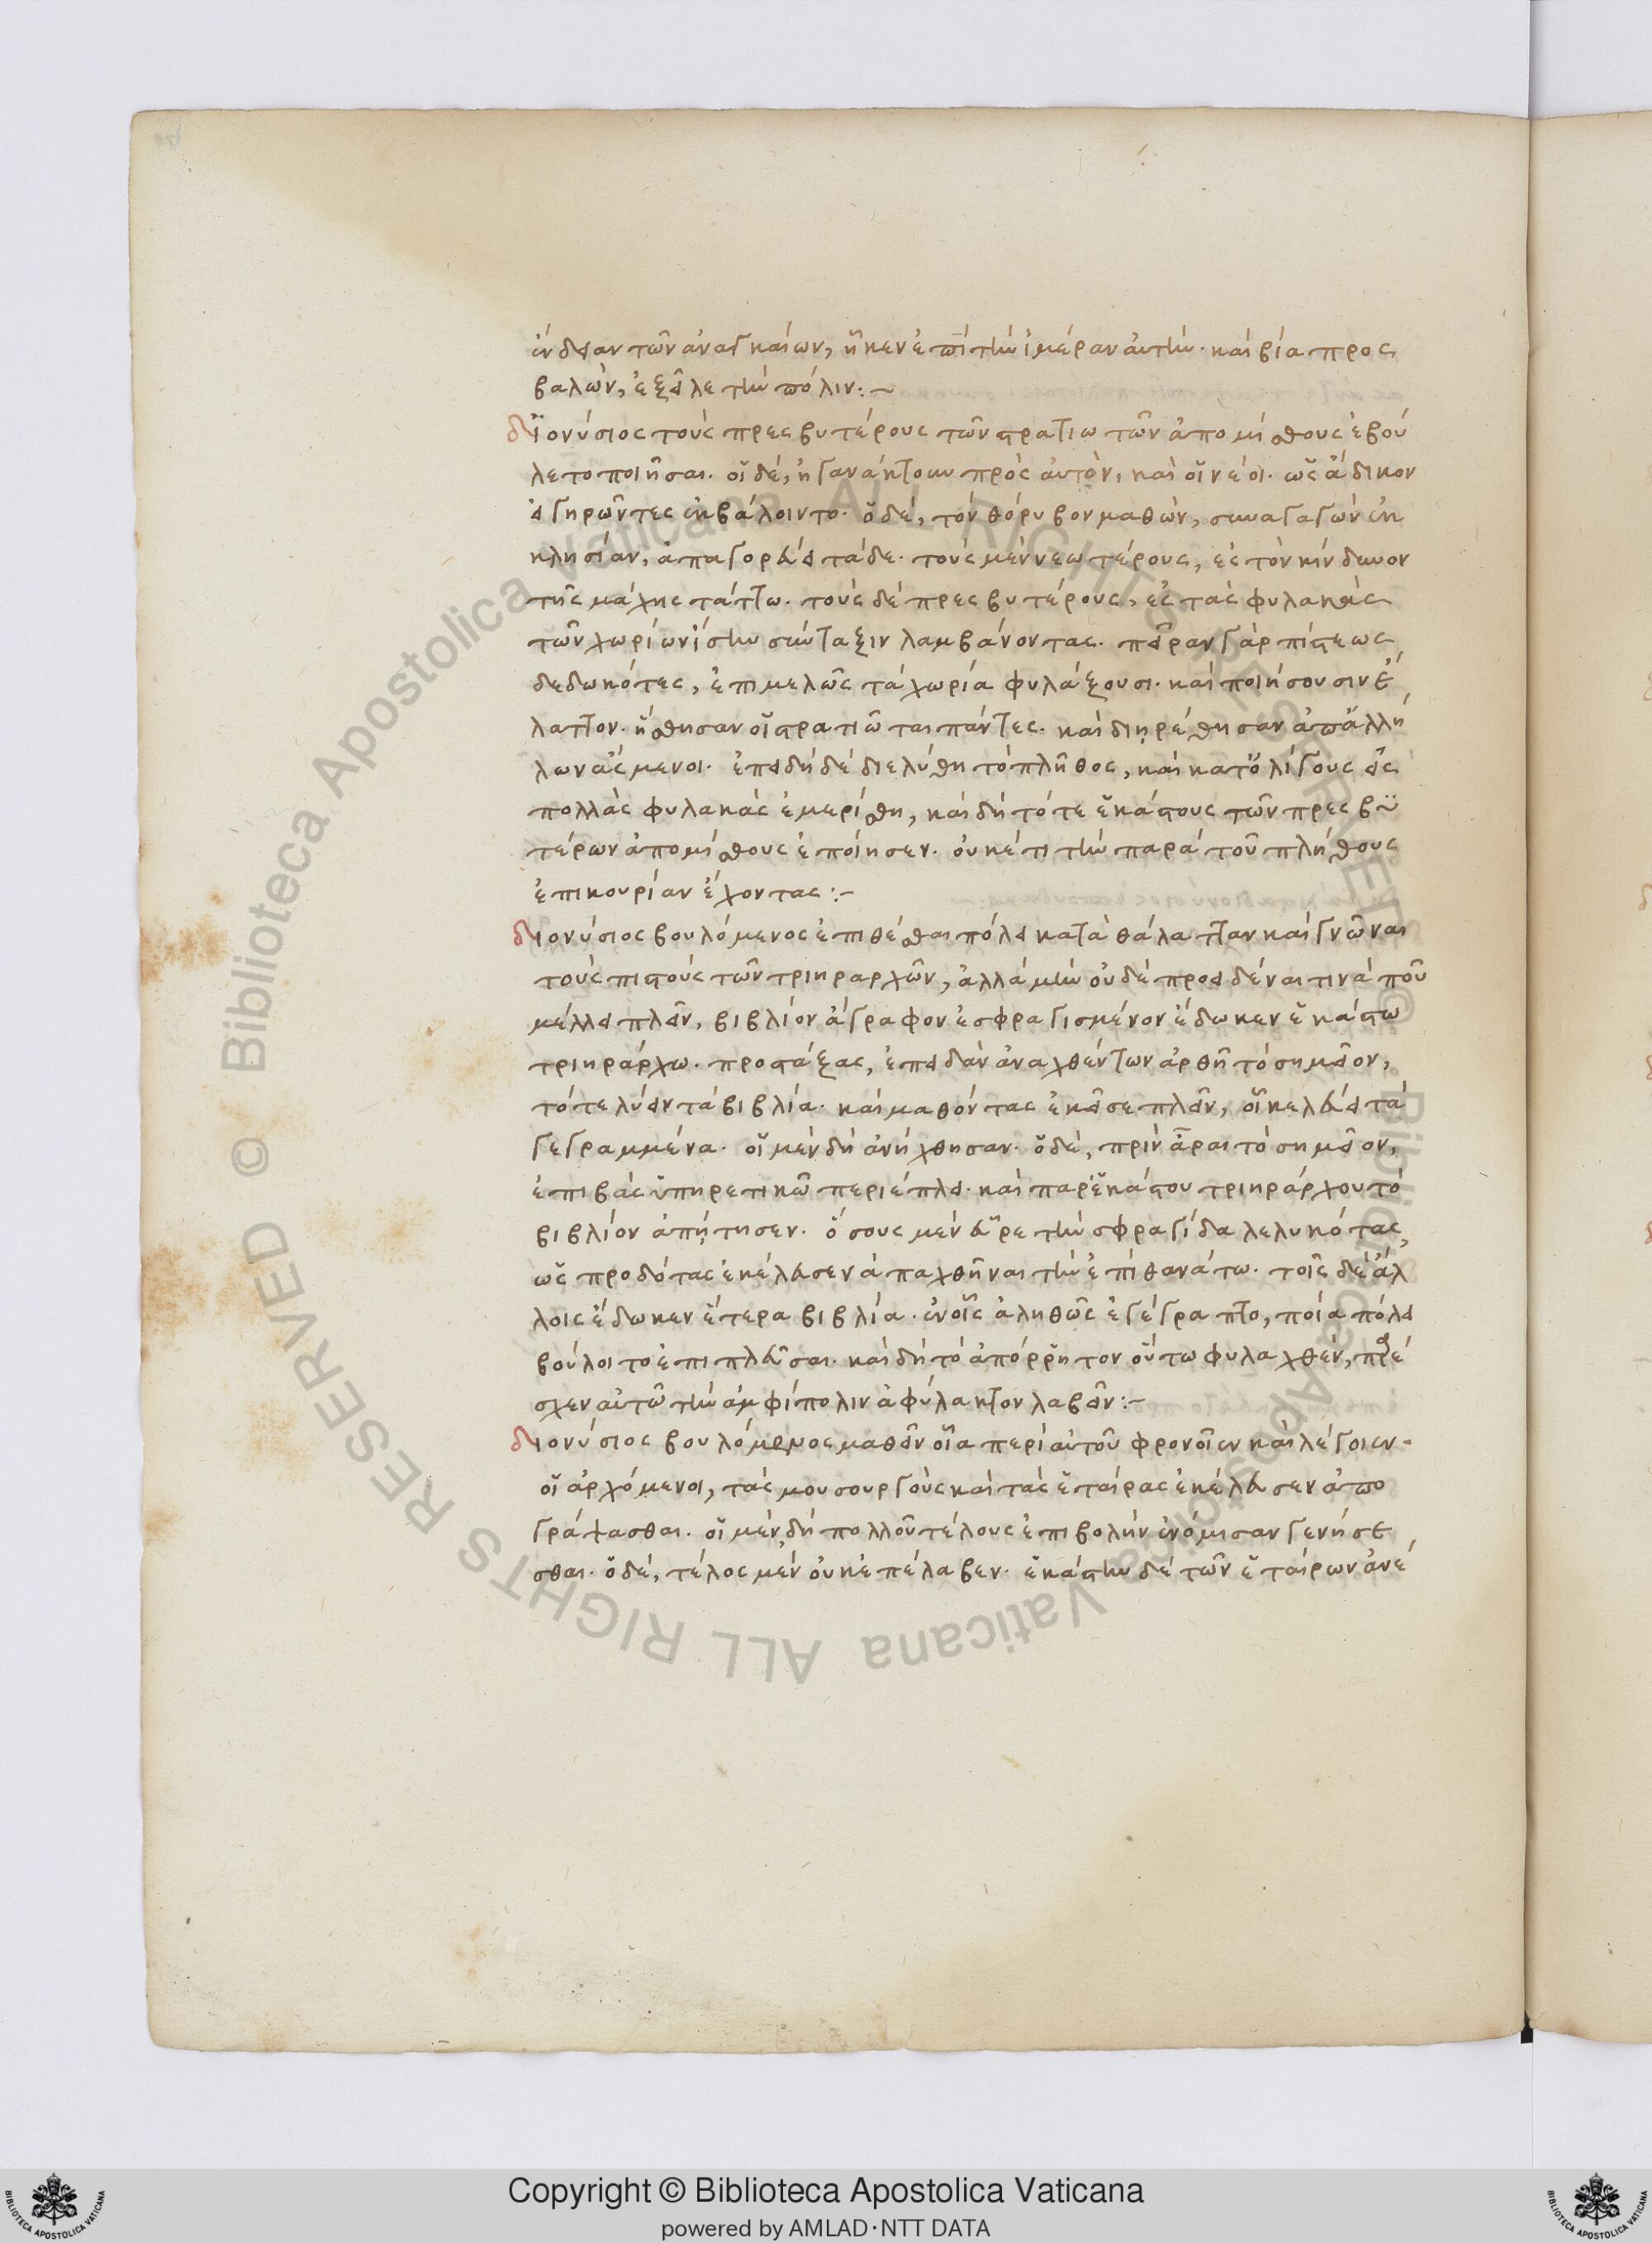 ἔνδειαν τῶν ἀναγκαίων, ἧκεν ἐπὶ τὴν ἡμέραν αὐτὴν. καὶ βία προς
βαλὼν, ἐξεῖλε τὴν πόλιν:~
Διονύσιος τοὺς πρεσβυτέρους τῶν στρατιωτῶν ἀπομίσθους ἐβού
λετο ποιῆσαι. οἱ δὲ, ἠγανάκτουν πρὸς αὐτὸν, καὶ οἱ νέοι. ὡς ἄδικον
εἰ γηρῶντες ἐκβάλοιντο. ὁ δὲ, τὸν θόρυβον μαθὼν, συναγαγὼν ἐκ
κλησίαν, ἀπαγορεύει τάδε. τοὺς μὲν νεωτέρους, ἐς τὸν κίνδυνον
τῆς μάχης τάττω. τοὺς δὲ πρεσβυτέρους, ἐς τὰς φυλακὰς
τῶν χωρίων ἴστην σύνταξιν λαμβάνοντας. πεῖραν γὰρ πίστεως
δεδωκότες, ἐπιμελῶς τὰ χωρία φυλάξουσι. καὶ ποιήσουσιν ἔ
λαττον. ἥσθησαν οἱ στρατιῶται πάντες. καὶ διῃρέθησαν ἀπ' ἀλλή
λων ἄσμενοι. ἐπειδὴ δὲ διελύθη τὸ πλῆθος, καὶ κατ' ὀλίγους εἰς
πολλὰς φυλακὰς ἐμερίσθη, καὶ δὴ τότε ἑκάστους τῶν πρεσβυ
τέρων ἀπομίσθους ἐποίησεν. οὐκέτι τὴν παρὰ τοῦ πλήθους
ἐπικουρίαν ἔχοντας:~
Διονύσιος βουλόμενος ἐπιθέσθαι πόλει κατὰ θάλατταν καὶ γνῶναι
τοὺς πιστοὺς τῶν τριηραρχῶν, ἀλλὰ μὴν οὐδὲ προειδέναι τινὰ ποῦ
μέλλει πλεῖν, βιβλίον ἄγραφον ἐσφραγισμένον ἔδωκεν ἑκάστω
τριηράρχω. προστάξας, ἐπειδὰν ἀναχθέντων ἀρθῆ τὸ σημεῖον,
τότε λύειν τὰ βιβλία. καὶ μαθόντας ἐκεῖσε πλεῖν, οἷ κελεύει τὰ
γεγραμμένα. οἱ μὲν δὴ ἀνήχθησαν. ὁ δὲ, πρὶν ἆραι τὸ σημεῖον,
ἐπιβὰς ὑπηρετικῶ περιέπλει. καὶ παρ' ἑκάστου τριηράρχου τὸ
βιβλίον ἀπῄτησεν. ὅσους μὲν εὗρε τὴν σφραγίδα λελυκότας,
ὡς προδότας ἐκέλευσεν ἀπαχθῆναι τὴν ἐπὶ θανάτω. τοῖς δὲ ἄλ
λοις ἔδωκεν ἕτερα βιβλία. ἐν οἷς ἀληθῶς ἐγέγραπτο, ποία πόλει
βούλοιτο ἐπιπλεῦσαι. καὶ δὴ τὸ ἀπόρρητον οὕτω φυλαχθὲν, παρέ
σχεν αὐτῶ τὴν ἀμφίπολιν ἀφύλακτον λαβεῖν:~
Διονύσιος βουλόμενος μαθεῖν οἷα περὶ αὐτοῦ φρονοῖεν καὶ λέγοιεν.
οἱ ἀρχόμενοι, τὰς μουσουργοὺς καὶ τὰς ἑταίρας ἐκέλευσεν ἀπο
γράψασθαι. οἱ μὲν δὴ πολλοῦ τέλους ἐπιβολὴν ἐνόμισαν γενήσε
σθαι. ὁ δὲ, τέλος μὲν οὐκ ἐπέλαβεν. ἑκάστην δὲ τῶν ἑταίρων ἀνέ
Copyright © Biblioteca Apostolica Vaticana
powered by AMLAD·NTT DATA